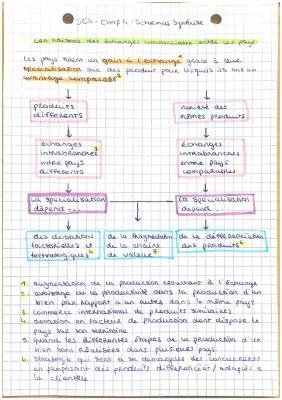 SES - Chap 4 - Schémas Synthèse
Les raisons des échanges commerciaux entre les pays
Les pays tirent un gain à l'échange¹ grâce à leur
spécialisation sur des produits pour lesquels ils ont un
avantage comparatif²
produits
différents
variété des
mêmes produits
échanges
intrabranches³
entre pays
différents
échanges
intrabranches
entre pays
comparables
La spécialisation
dépend ...
La spécialisation
dépend ...
des dotations
factorielles et
technologiques⁴
de la fragmentation
de la chaîne
de valeur⁵
de la différenciation
des produits⁶
1. augmentation de la production résultant à l'échange
2. avantage de la productivité dans la production d'un
bien par rapport à un autre dans le même pays.
3. commerce international de produits similaires
4. dotation en facteur de production dont dispose le
pays sur son territoire
5. quand les différentes étapes de la production d'un
bien sont réalisées dans plusieurs pays.
6. stratégie qui sert à se démarquer des concurrents
en proposant des produits différenciés / adaptés à
la clientèle